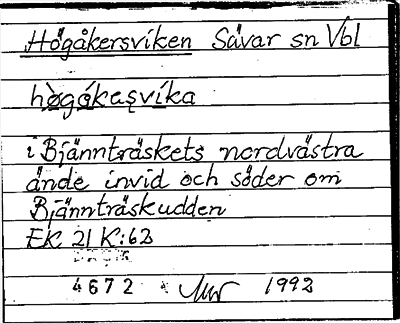 Högåkersviken Sävar sn Vbl
högåkaşvíka
i Bjännträskets nordvästra
ände invid och söder om
Bjännträskudden
EK 21 K:62
4672 1992